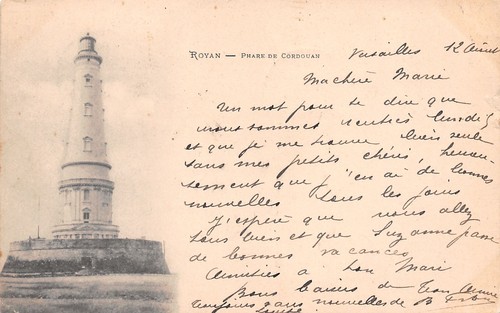 ROYAN — PHARE DE CORDOUAN
Versailles 12 Août
Ma chère Marie
Un mot pour te dire que
nous sommes rentrés lundi
et que je me trouve bien seule
sans mes petits chéris, heureu-
sement que j'en ai de bonnes
nouvelles tous les jours
J'espère que vous allez
tous bien et que Suzanne passe
de bonnes vacances
Amitiés à ton Mari
Bons baisers de
Toujours sans nouvelles de B